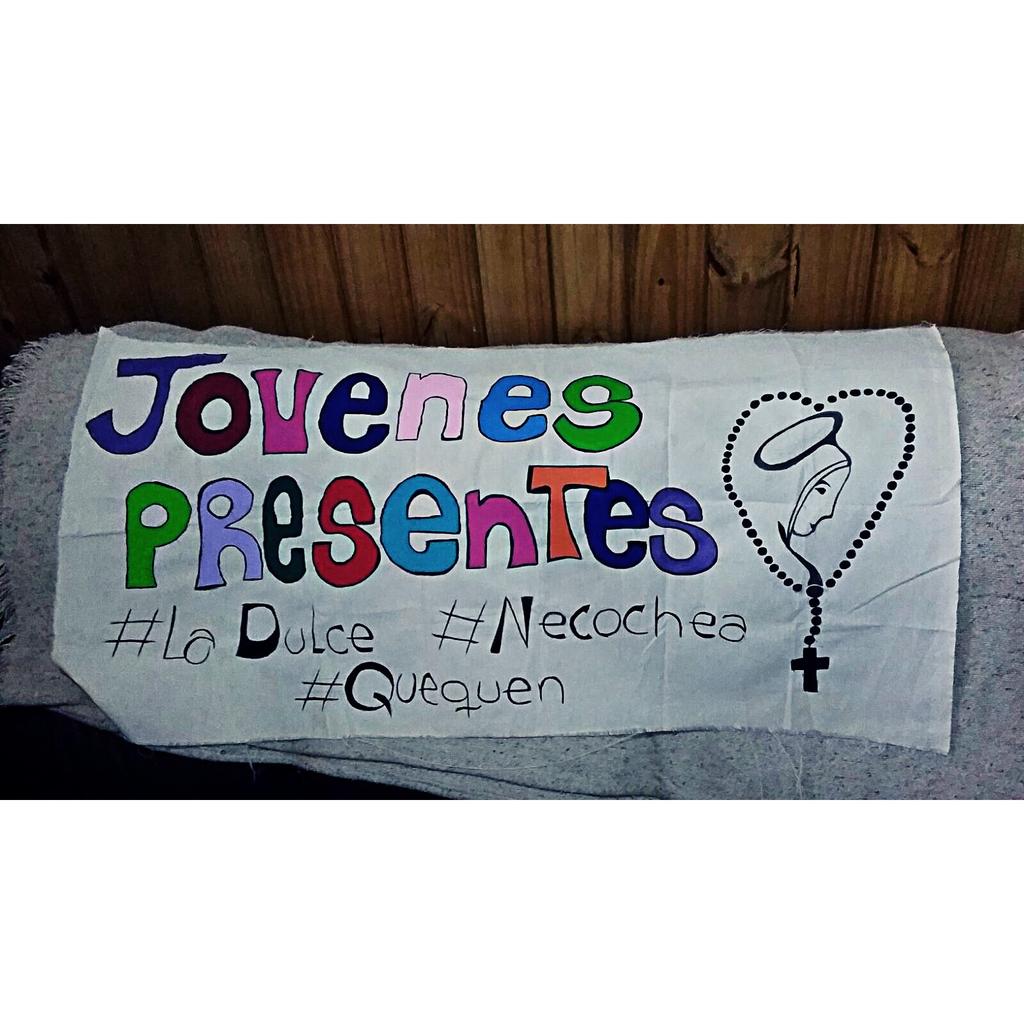 Jovenes
PRESenTes
#La Dulce #Necochea
#Quequen